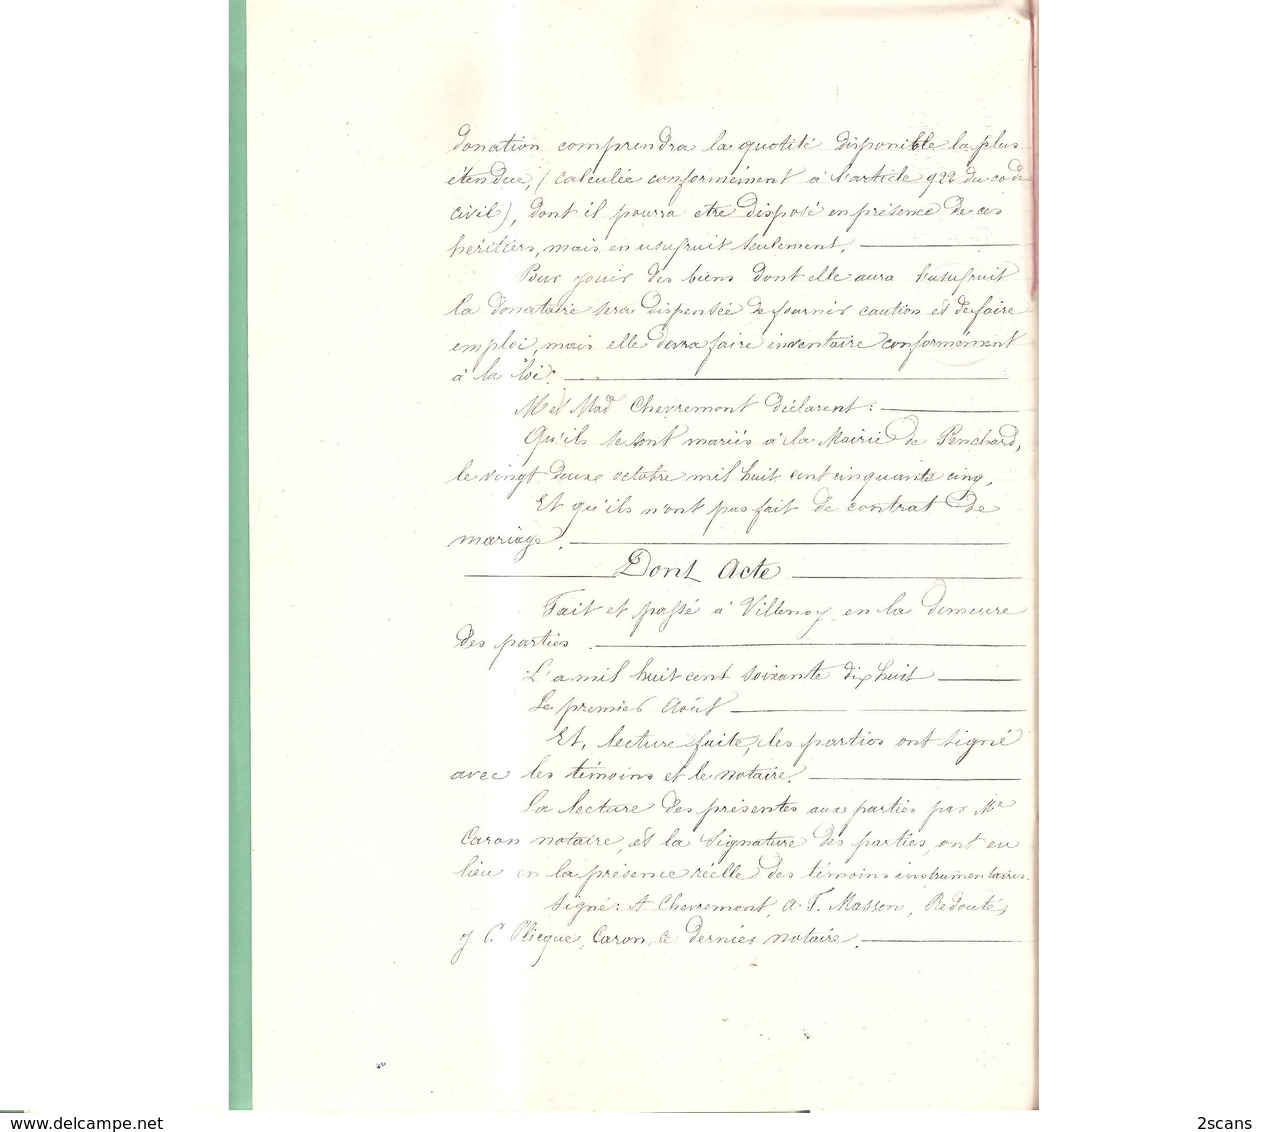 donation comprendra la quotité disponible la plus
étendue, (calculée conformément à l'article 922 du code
civil), dont il pourra etre disposé en présence de ces
héritiers, mais en usufruit seulement.
Pour jouir des biens dont elle aura l'usufruit
la donataire sera dispensée de fournir caution et de faire
emploi, mais elle devra faire inventaire conformément
à la loi.
M et Mad Chevremont déclarent :
Qu'ils se sont mariés à la Mairie de Penchard,
le vingt deux octobre mil huit cent cinquante cinq,
Et qu'ils n'ont pas fait de contrat de
mariage.
Dont Acte
Fait et passé à Villenoy, en la demeure
des parties.
L'a mil huit cent soixante dix huit
Le premier Août
Et, lecture faite, les parties ont signé
avec les témoins et le notaire.
La lecture des présentes aux parties par Me
Caron notaire, et la signature des parties, ont eu
lieu en la présence réelle des témoins instrumentaires.
Signé : A Chevremont, A. F. Masson, Redouté,
C. Plicque, Caron, ce dernier notaire.
2scans